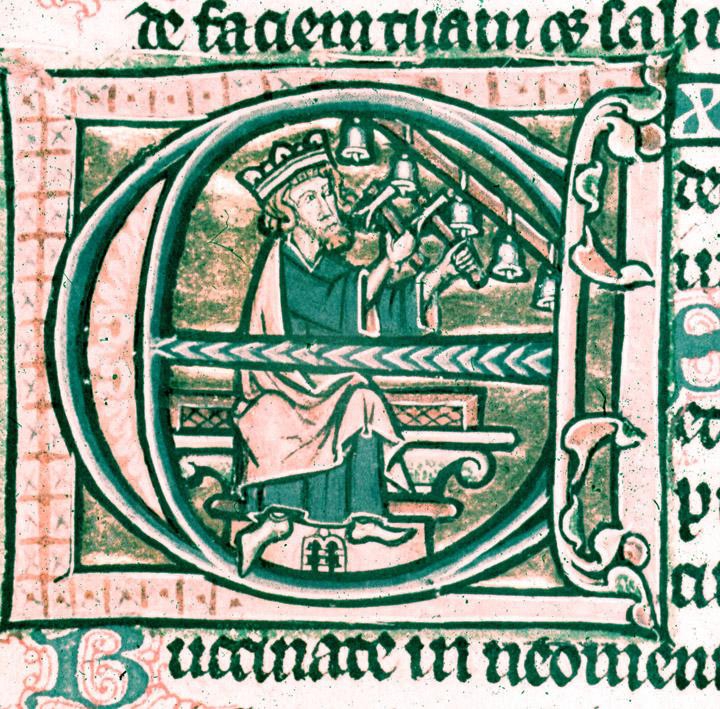 de faciem tuam & salu
EX
de
et
Buccinate in neomeni